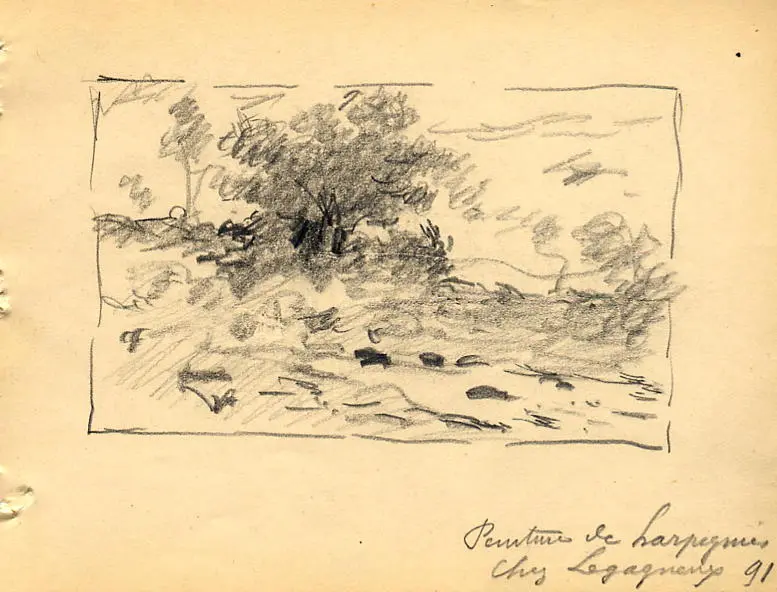 Peinture de harpignies
chez Legagneux 91